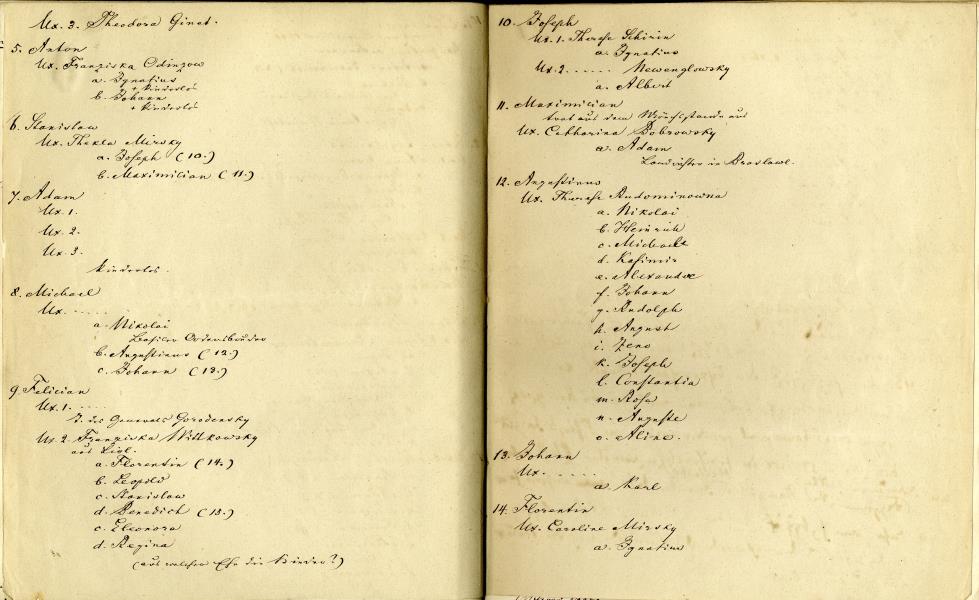 Ux. 3. Theodora Ginet.
5. Anton
Ux. Franziska Odinzow
a. Ignatius
+ kinderlos
b. Johann
+ kinderlos
6. Stanislaw
Ux. Thekla Mirsky
a. Joseph (10.)
b. Maximilian (11.)
7. Adam
Ux. 1.
Ux. 2.
Ux. 3.
kinderlos.
8. Michael
Ux. .....
a. Nikolai
Basilier Ordensbruder
b. Augustinus (12.)
c. Johann (13.)
9. Felician
Ux. 1. ....
T. des Generals Gorodensky
Ux. 2. Franziska Wittkowsky
aus
a. Florentin (14.)
b. Leopold
c. Stanislaw
d. Benedict (15.)
c. Eleonora
d. Regina
(aus welcher Ehe die Kinder?)
10. Joseph
Ux. 1. Therese Schirin
a. Ignatius
Ux. 2. ..... Newenglowsky
a. Albert
11. Maximilian
trat aus dem Mönchsstande aus
Ux. Catharina Dobrowsky
a. Adam
Landrichter in Braslawl.
12. Augustinus
Ux. Therese Rudominowna
a. Nikolai
b. Heinrich
c. Michael
d. Kasimir
e. Alexander
f. Johann
g. Rudolph
h. August
i. Zeno
k. Joseph
l. Constantia
m. Rosa
n. Auguste
o. Aline.
13. Johann
Ux. .....
a. Karl
14. Florentin
Ux. Caroline Mirsky
a. Ignatius